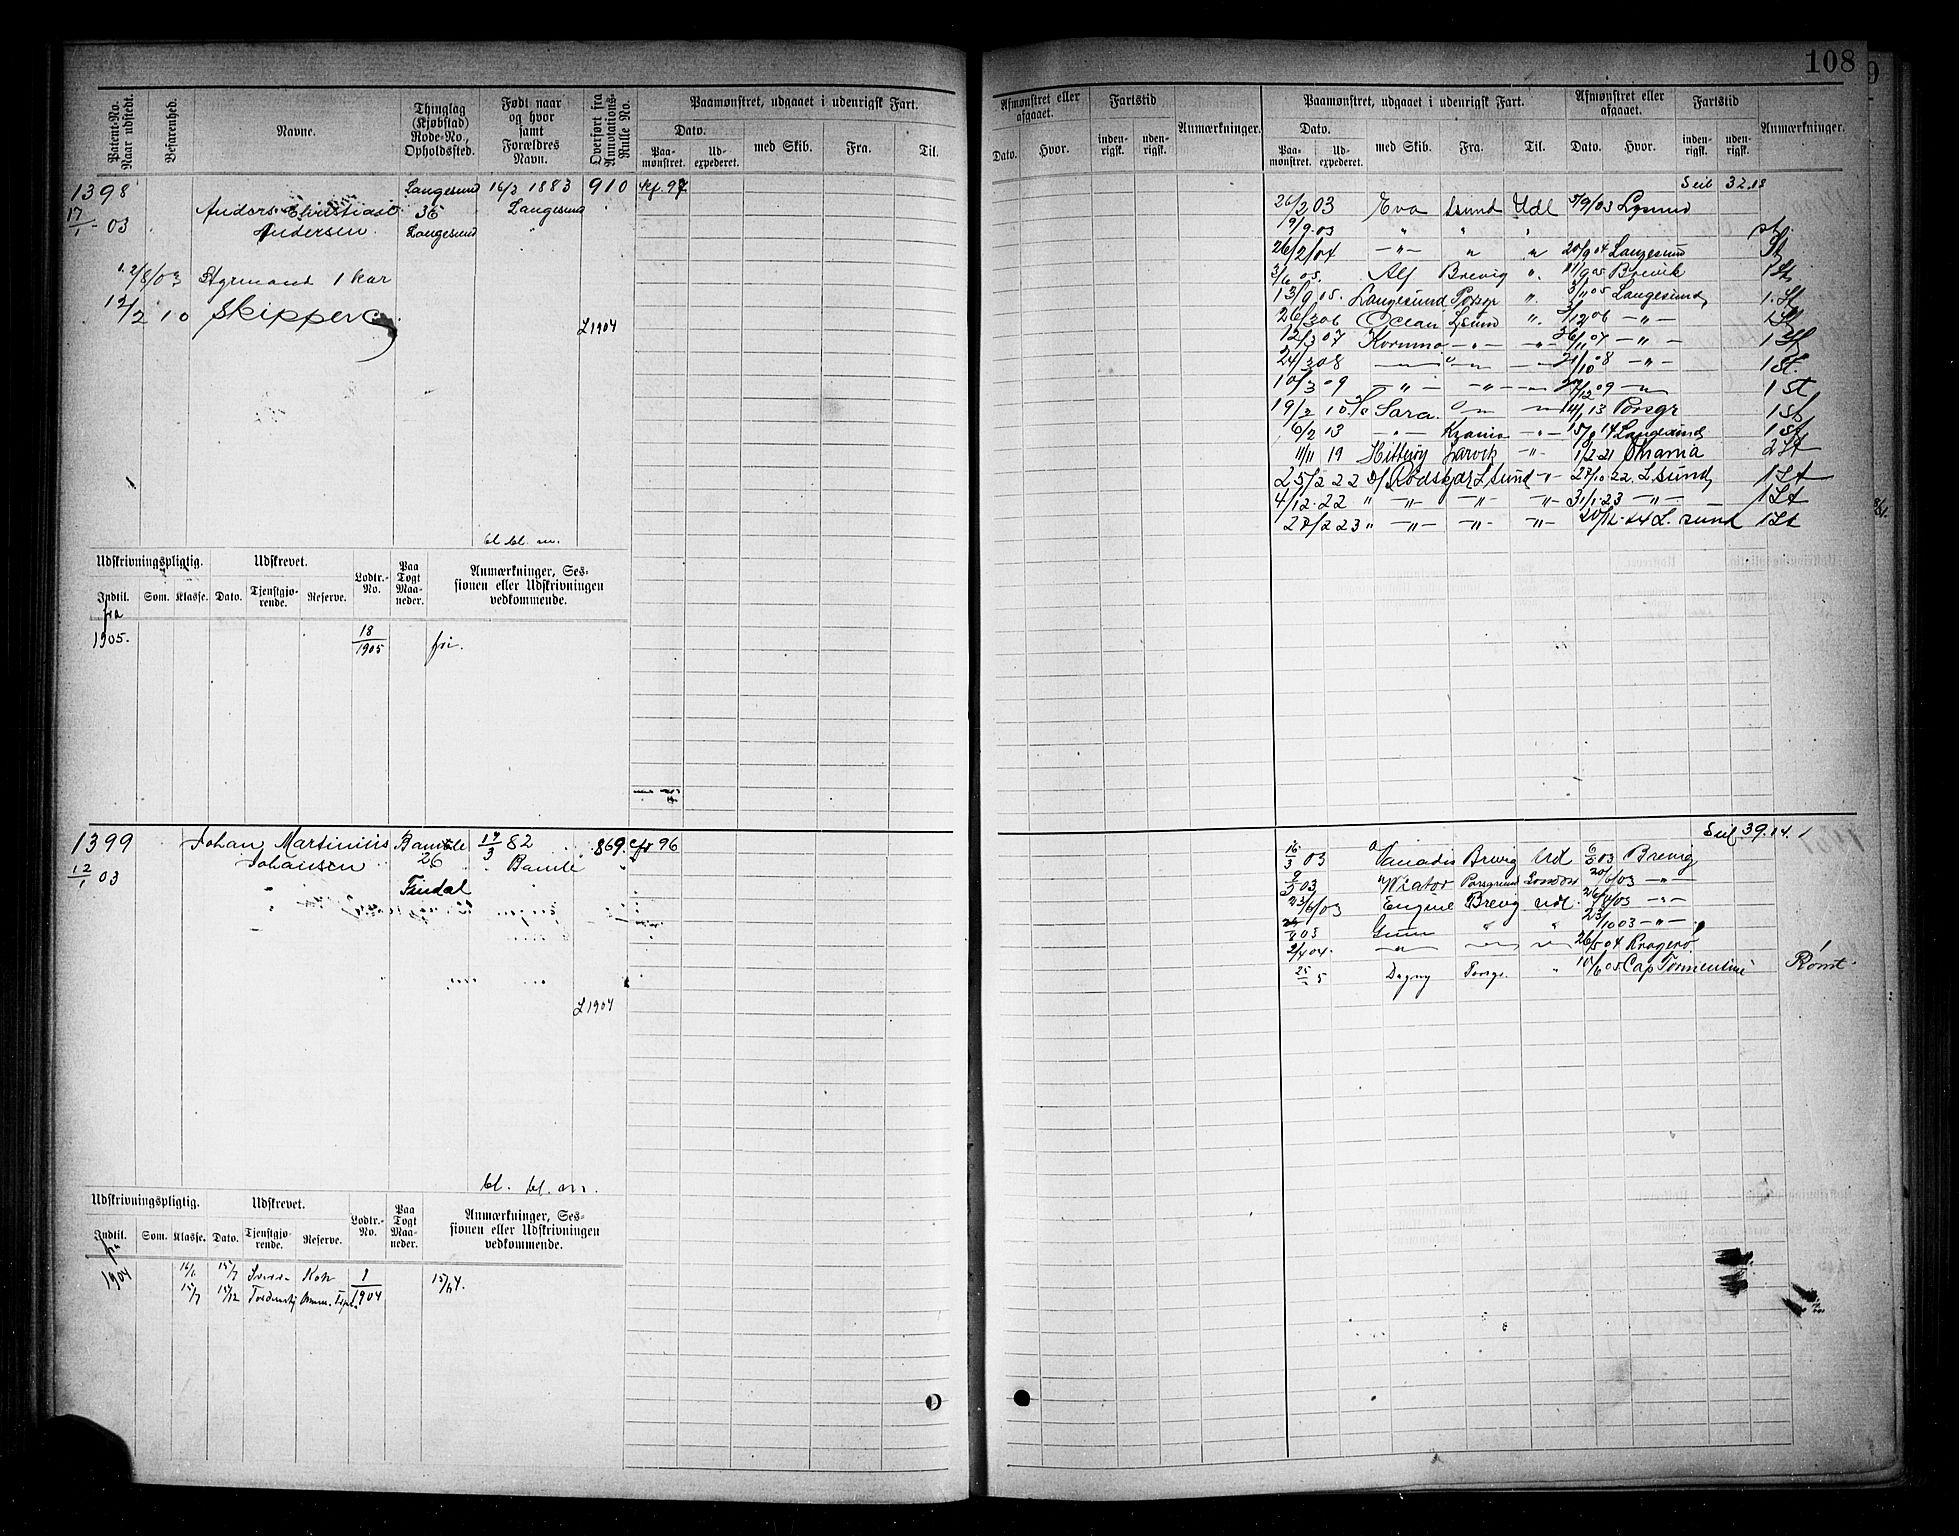 108
Patent-No. Naar udstedt.
Befarenhed.
Navne.
Thinglag (Kjøbstad) Rode-No., Opholdssted.
Født naar og hvor samt Forældres Navn.
Overført fra Annotations-Rulle No.
Paamønstret, udgaaet i udenrigsk Fart.
Dato.
Paamønstret.
Udexpederet.
med Skib.
Fra.
Til.
Afmønstret eller afgaaet.
Dato.
Hvor.
Fartstid
indenrigsk.
udenrigsk.
Anmærkninger.
Paamønstret, udgaaet i udenrigsk Fart.
Dato.
Paamønstret.
Udexpederet.
med Skib.
Fra.
Til.
Afmønstret eller afgaaet.
Dato.
Hvor.
Fartstid
indenrigsk.
udenrigsk.
Anmærkninger.
1398
17/1 - 03
Anders Christian
Andersen
Langesund
36
Langesund
16/2 1883
Langesund
910
12/8/03 Styrmand 1 kar
12/2 10 Skipper
L1904
bl. bl. m.
Seil 32.18
26/2 03 Eva Lsund Udl 5/9/03 Lgsund
19/9.03 " "
26/2/04 -"- " " 20/9 04 Langesund St
3/6 05. Alf Brevig ". 11/9 05 Brevik 1 St
13/9 05. Langesund Porsgr ". 3/11 05 Langesund 1. St
26/3 06 Ocean Lgsund ". 3/12 06 -"- 1 St
12/3 07 Kornmo -"- -"- 26/11 07 -"- 1 St
24/3 08 -"- -"- 21/10 08 -"- 1 St.
10/3 09 -"- -"- -"- 12 09 -"- 1 St
19/2 10 Sara " -"- 14/1 13 Porsgr 1 St
6/2 13 -"- Krania -"- 15/8 14 Langesund 1 St
11/11 19 Hitterøy Larvik -"- 1/2 21 Khania 2 St
25/2 22 D/ Rødskjær L sund -"- 27/10.22. L.sund 1 St
4/12.22 " -"- -"- -"- 31/1.23 -"- 1 St
27/2 23 " -"- -"- -"- 20/12.24 L. sund 1 St
Udskrivningspligtig.
Indtil.
Som.
Klasse.
Udskrevet.
Dato.
Tjenstgjørende.
Reserve.
Lodtr.-No.
Paa Togt Maaneder.
Anmærkninger, Sessionen eller Udskrivningen vedkommende.
fra
1905.
18/1905
fri.
1399
12/1 03
Johan Martinius
Johansen
Bamble
26
Findal
17/3 82
Bamble
869. cfr 96
L1904
bl. bl. m.
Seil 39.14.
16/3 03 Vanadis Brevig Udl 6/5 03 Brevig
9/5 03 Viator Porsgrund London 20/6/03 -"-
23/6/03 Eugine Brevg Udl. 26/8/03 -"-
8 03 Gunn " " 23/10 03 -"-
2/4 04. -"- -"- -"- 26/5 04 Kragerø
25/ 5 Dagny Porsgr. " 10/6 05 Cap Tormentine Rømt.
Udskrivningspligtig.
Indtil.
Som.
Klasse.
Udskrevet.
Dato.
Tjenstgjørende.
Reserve.
Lodtr.-No.
Paa Togt Maaneder.
Anmærkninger, Sessionen eller Udskrivningen vedkommende.
fra
1904
16/1 15/7 Kok 1/1904
15/7 15/12 Tordenskj